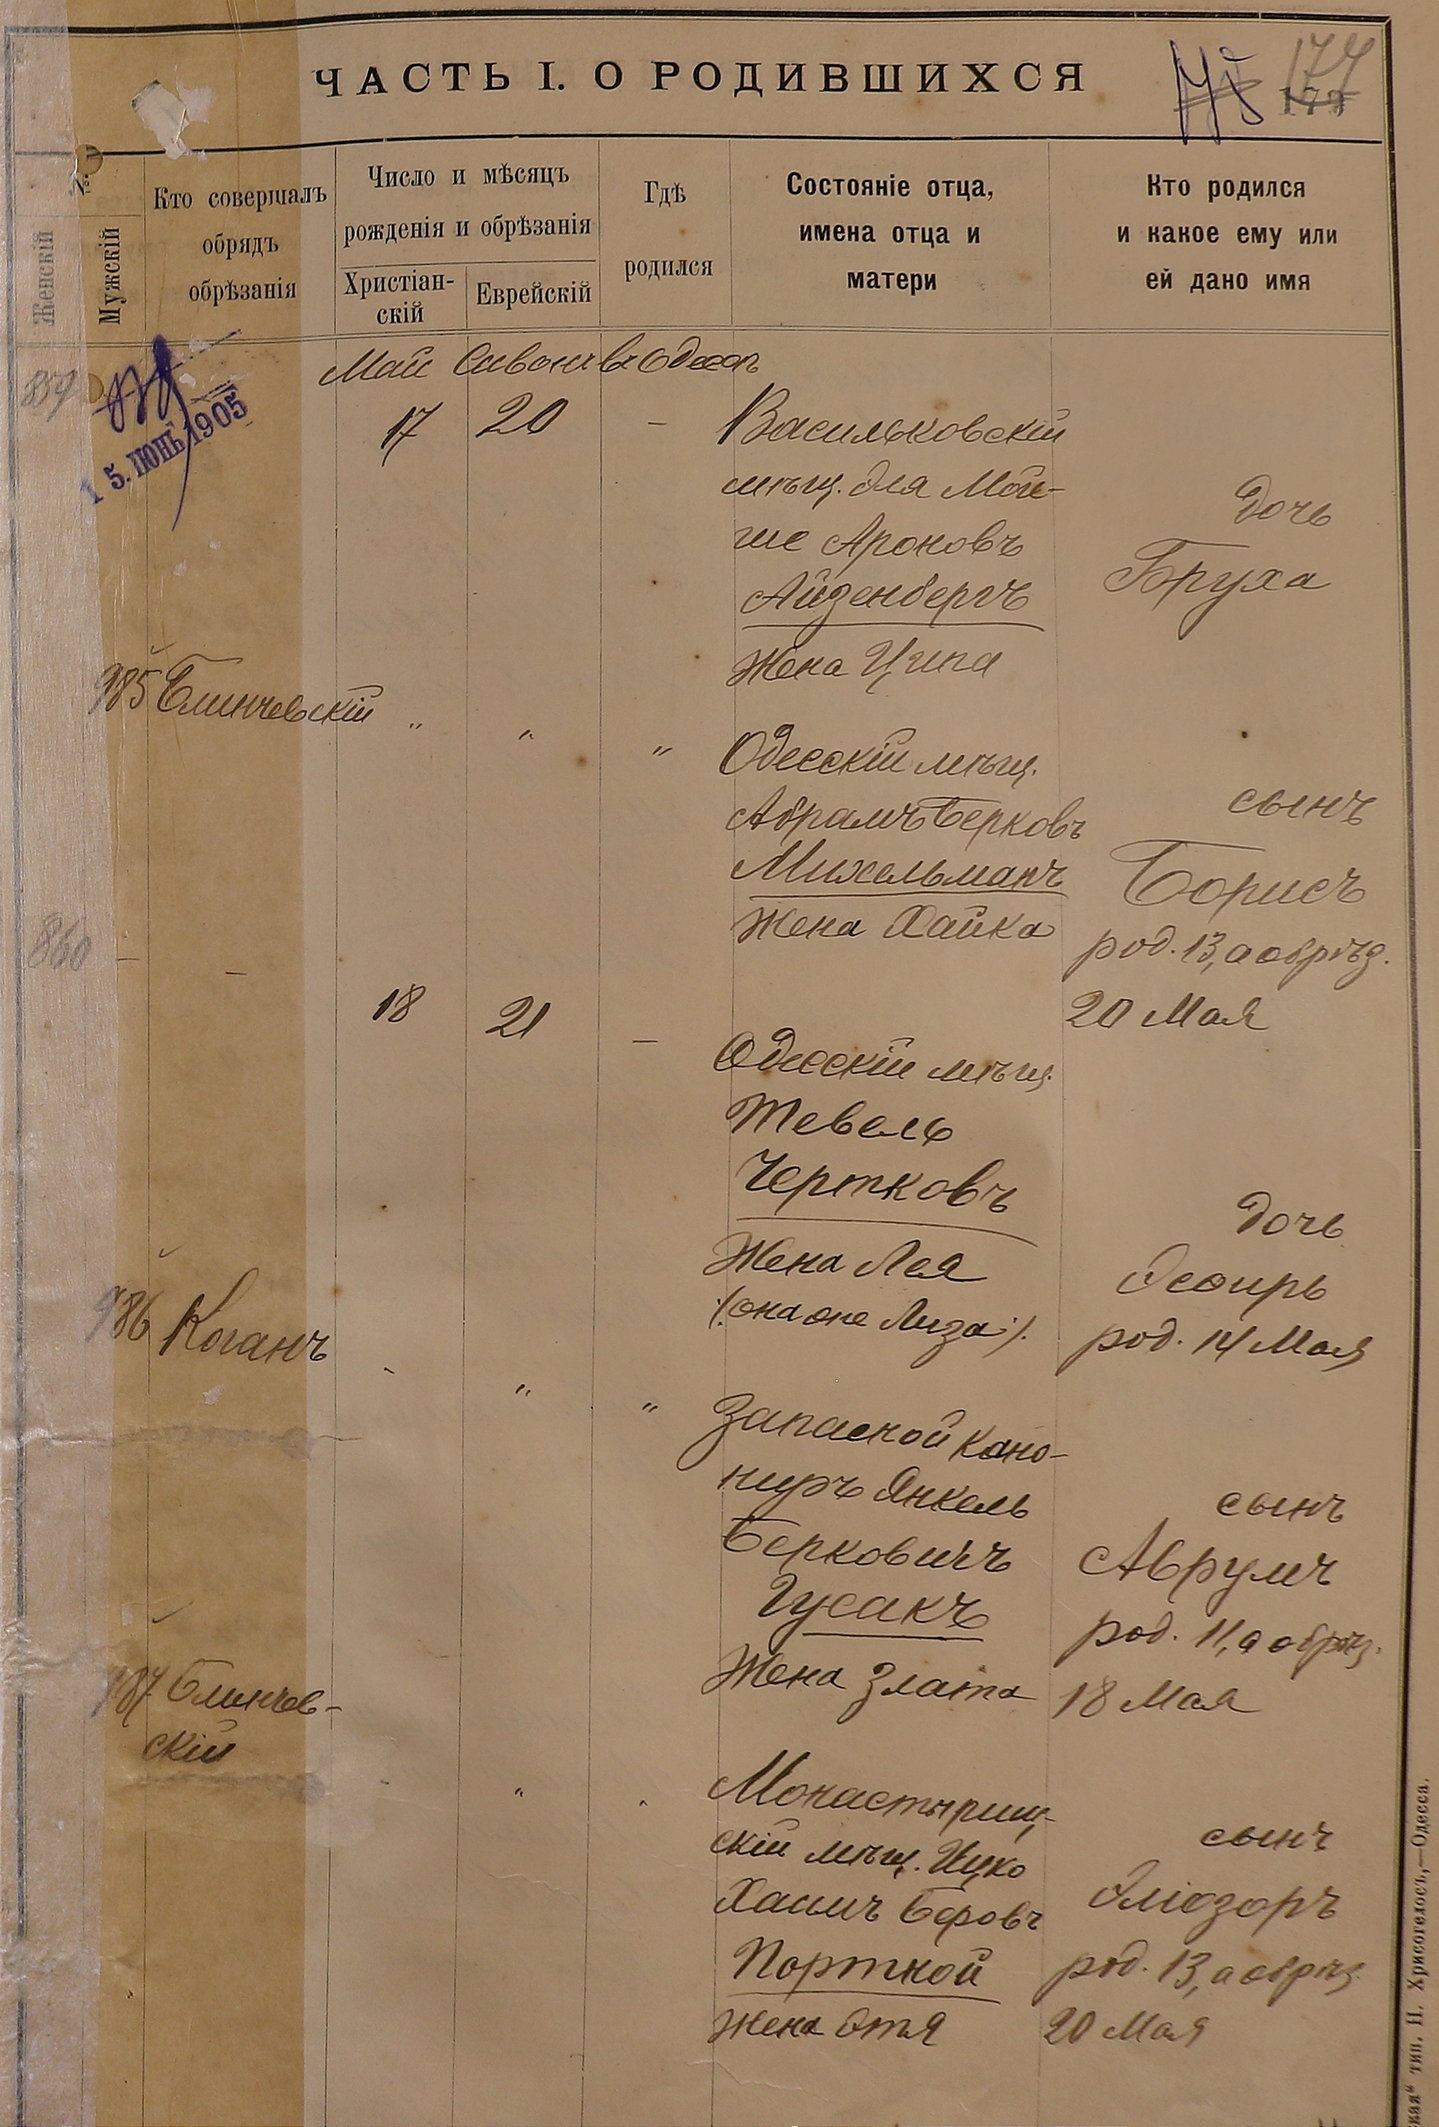 ЧАСТЬ I. О РОДИВШИХСЯ
177
177
№
Женскій
Мужскій
Кто совершалъ
обрядъ
обрѣзанія
Число и мѣсяцъ
рожденія и обрѣзанія
Христіан-
скій
Еврейскій
Гдѣ
родился
Состояніе отца,
имена отца и
матери
Кто родился
и какое ему или
ей дано имя
Май Сивонъ въ Одессѣ
859
15. ІЮНЬ 1905
17 20 —
Васильковскій
мѣщ. Эля Мой-
ше Ароновъ
Айзенбергъ
жена Ципа
дочь
Бруха
985 Блинчевскій " " "
Одесскій мѣщ.
Абрамъ Берковъ
Михельманъ
жена Хайка
сынъ
Борисъ
род. 13, а обрѣз.
20 Мая
860 — —
18 21 —
Одесскій мѣщ.
Тевель
Чертковъ
Жена Лея
/:она же Лиза:/.
дочь
Эсѳирь
род. 14 Мая
986 Коганъ " " "
Запасной кано-
ниръ Янкель
Берковичъ
Гусакъ
Жена Злата
сынъ
Аврумъ
род. 11, а обрѣз.
18 Мая
987 Блинчев-
скій
Монастырищ-
скій мѣщ. Ицко
Хаимъ Беровъ
Портной
жена Этя
сынъ
Эліозоръ
род. 13, а обрѣз.
20 Мая
тип. И. Хрисогелосъ,—Одесса.